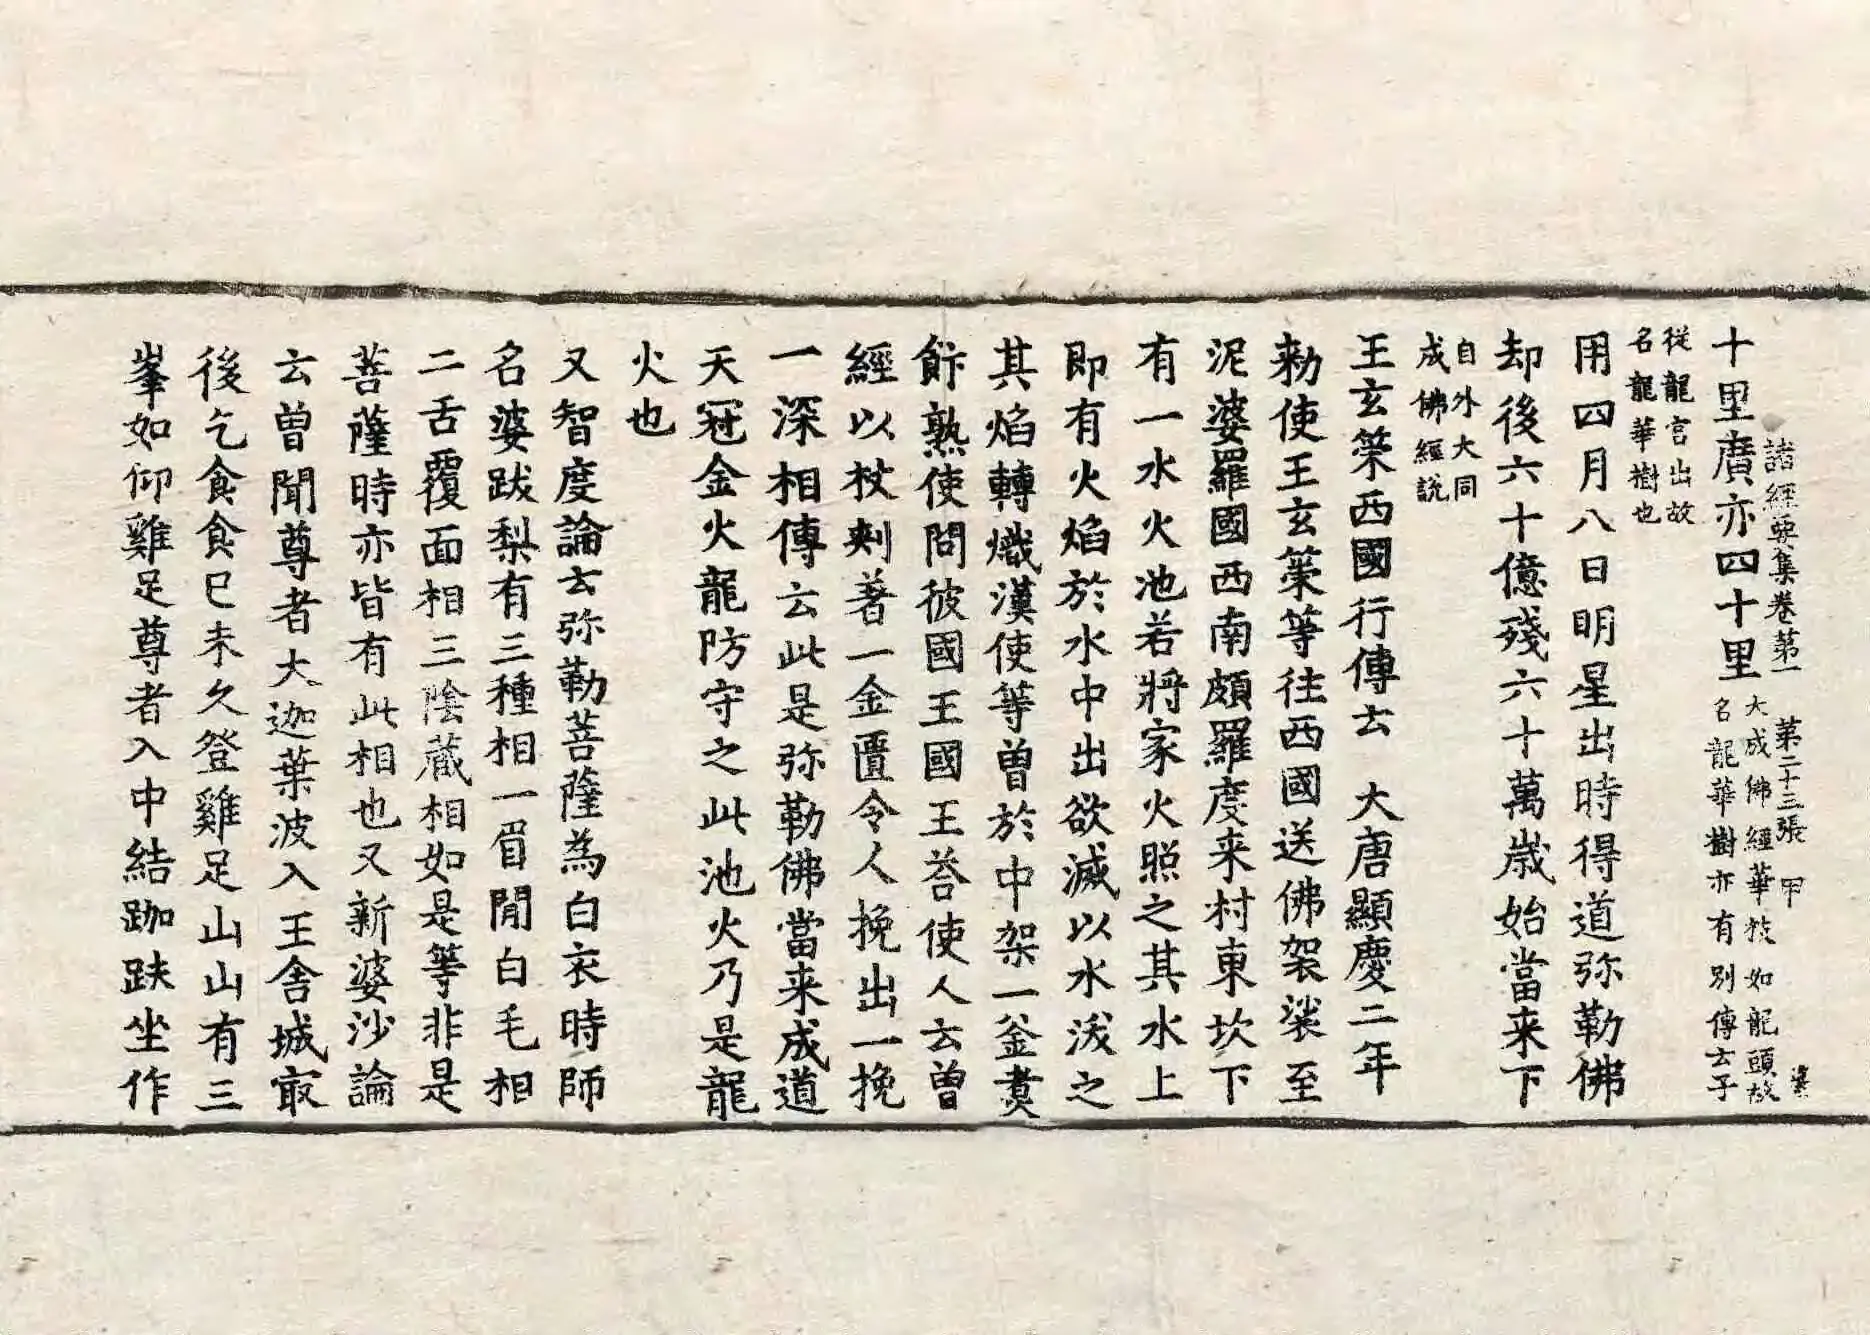 諸經要集卷第一　第二十三張　甲
十里廣亦四十里大成佛經華枝如龍頭故
名龍華樹亦有別傳云子
從龍宮出故
名龍華樹也
用四月八日明星出時得道弥勒佛
却後六十億殘六十萬歲始當来下
自外大同
成佛經說
王玄策西國行傳云　大唐顯慶二年
勑使王玄策等往西國送佛袈裟至
泥婆羅國西南頗羅度来村東坎下
有一水火池若將家火照之其水上
即有火焰於水中出欲滅以水沃之
其焰轉熾漢使等曾於中架一釜煑
飰熟使問彼國王國王荅使人云曾
經以杖刾著一金匱令人挽出一挽
一深相傳云此是弥勒佛當来成道
天冠金火龍防守之此池火乃是龍
火也
又智度論云弥勒菩薩為白衣時師
名婆跋梨有三種相一眉閒白毛相
二舌覆面相三陰藏相如是等非是
菩薩時亦皆有此相也又新婆沙論
云曾聞尊者大迦葉波入王舍城冣
後乞食食巳未久登雞足山山有三
峯如仰雞足尊者入中結跏趺坐作